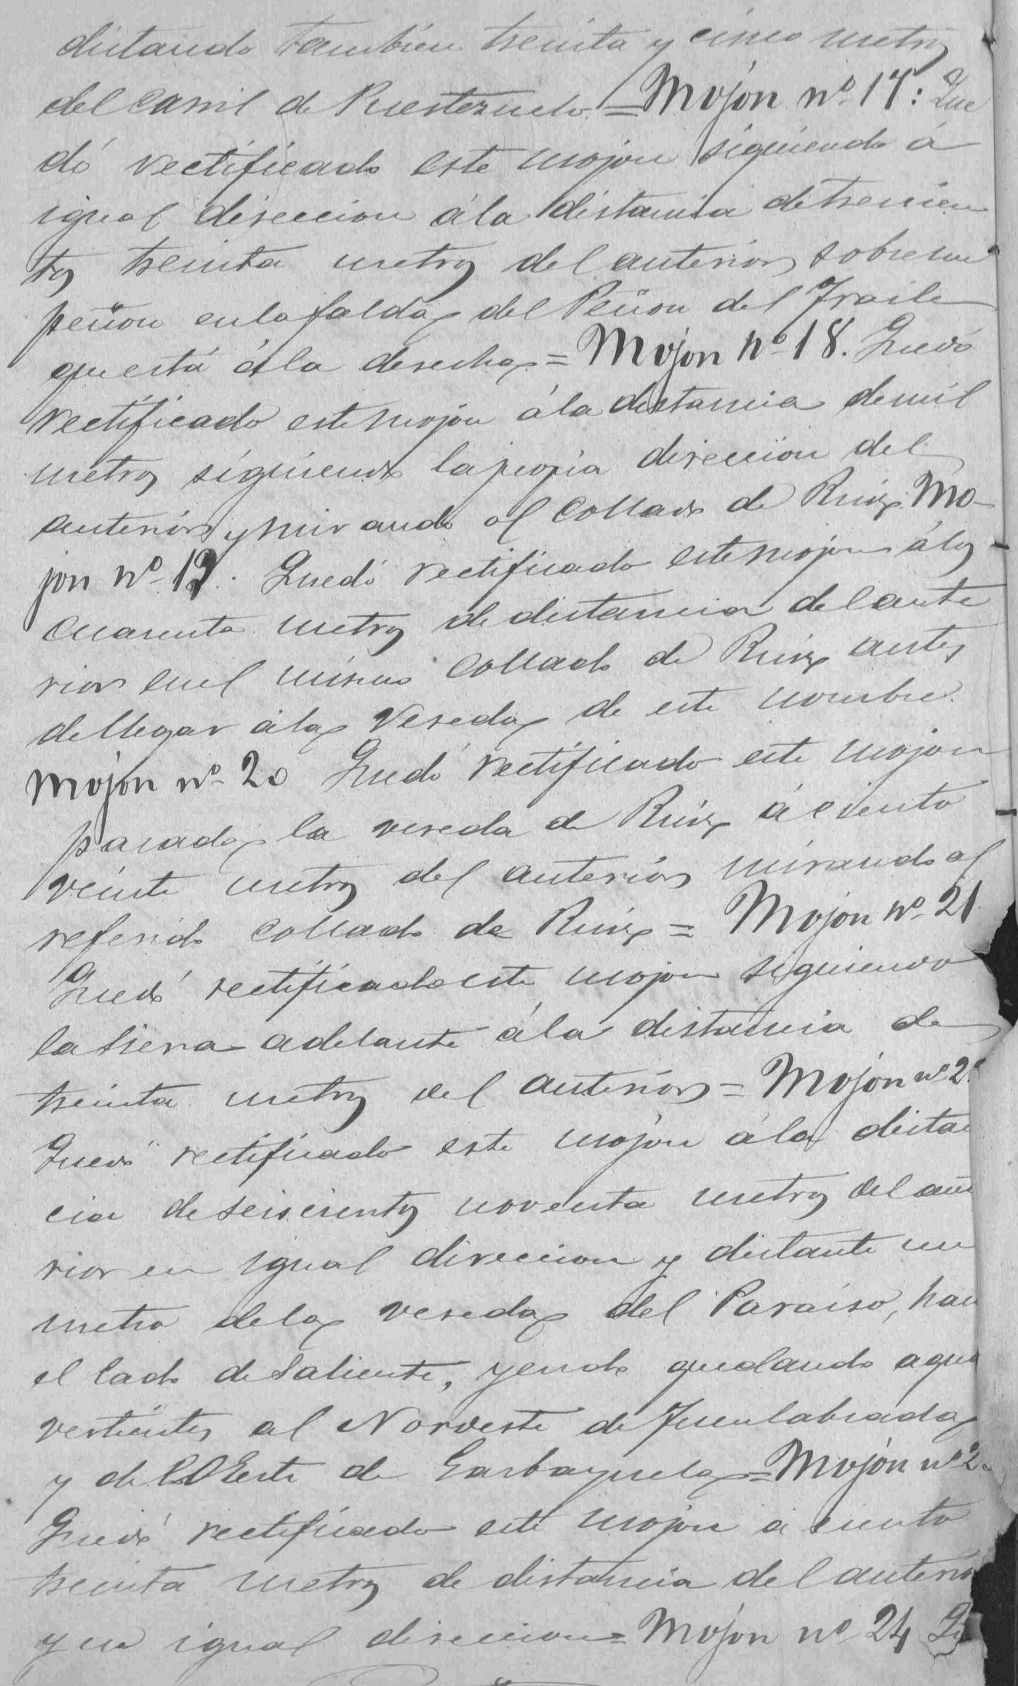 distando tambien treinta y cinco metros
del carril de Puertezuelo = Mojón nº 17: Que
dó rectificado este mojon siguiendo á
igual direccion á la distancia de trescien
tos treinta metros del anterior, sobre un
peñon en la falda del Peñon del Fraile
que está á la derecha = Mojón nº 18. Quedó
rectificado este mojon á la distancia de mil
metros siguiendo la propia direccion del
anterior y mirando al Collado de Ruiz Mo-
jon nº 19. Quedó rectificado este mojon á los
cuarenta metros de distancia del ante
rior en el mismo Collado de Ruiz antes
de llegar á la vereda de este nombre.
Mojón nº 20 Quedó rectificado este mojon
pasada la vereda de Ruiz á ciento
veinte metros del anterior mirando al
referido Collado de Ruiz = Mojon nº 21
Quedó rectificado este mojon siguiendo
la sierra adelante á la distancia de
treinta metros del anterior = Mojón nº 2
Quedó rectificado este mojón á la distan
cia de seiscientos noventa metros del ante
rior en igual direccion y distante un
metro de la vereda del Paraiso, hacia
el lado de Saliente, yendo quedando aguas
vertientes al Noroeste de Fuenlabrada
y del OEste de Garbayuela = Mojón nº 2
Quedó rectificado este mojon a ciento
treinta metros de distancia del anterior
y en igual direccion = Mojón nº 24 Qu